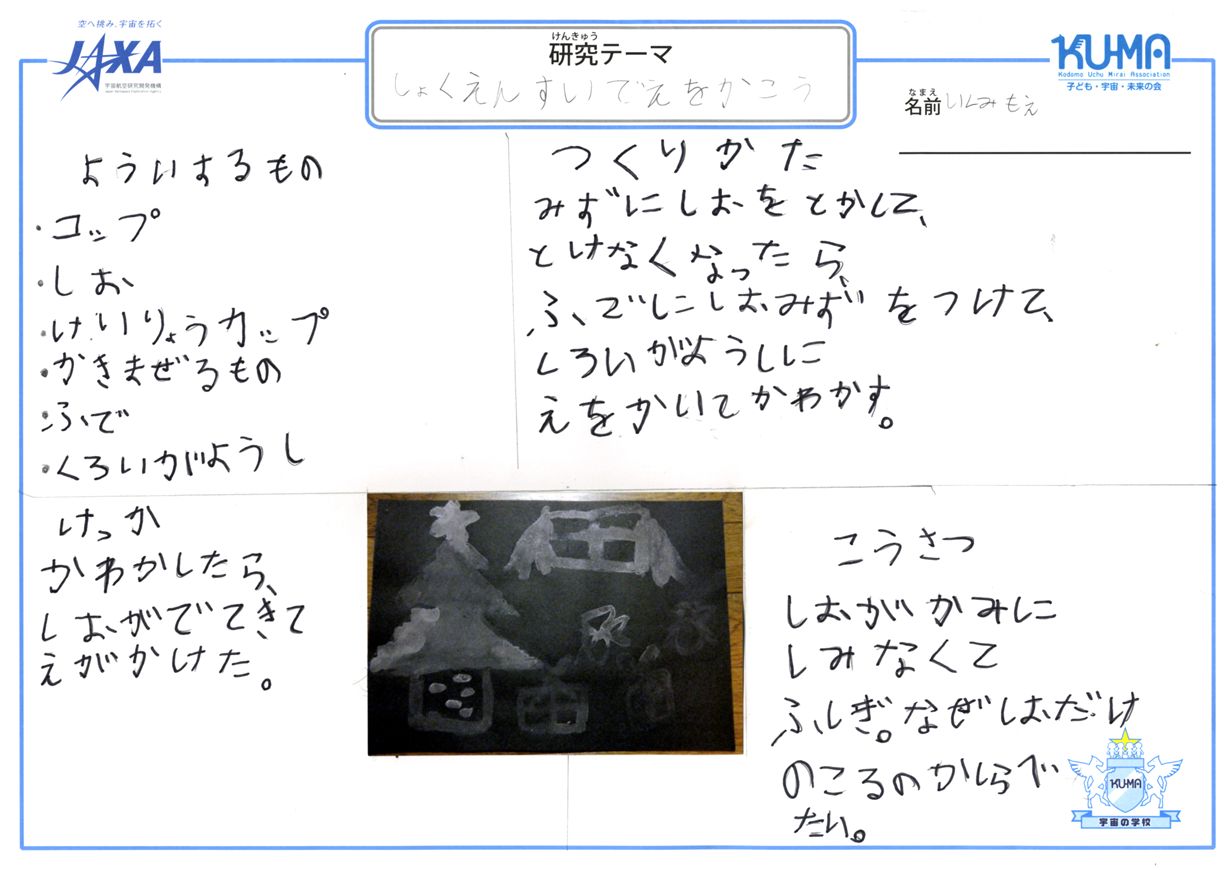 空へ挑み、宇宙を拓く
JAXA
宇宙航空研究開発機構
Japan Aerospace Exploration Agency
けんきゅう
研究テーマ
しょくえんすいでえをかこう
KU-MA
Kodomo Uchu Mirai Association
子ども・宇宙・未来の会
なまえ
名前
よういするもの
・コップ
・しお
・けいりょうカップ
・かきまぜるもの
・ふで
・くろいがようし
つくりかた
みずにしおをとかして、
とけなくなったら、
ふでにしおみずをつけて、
くろいがようしに
えをかいてかわかす。
けっか
かわかしたら、
しおがでてきて
えがかけた。
こうさつ
しおがかみに
しみなくて
ふしぎ。なぜしおだけ
のこるのかしらべ
たい。
KU-MA
宇宙の学校